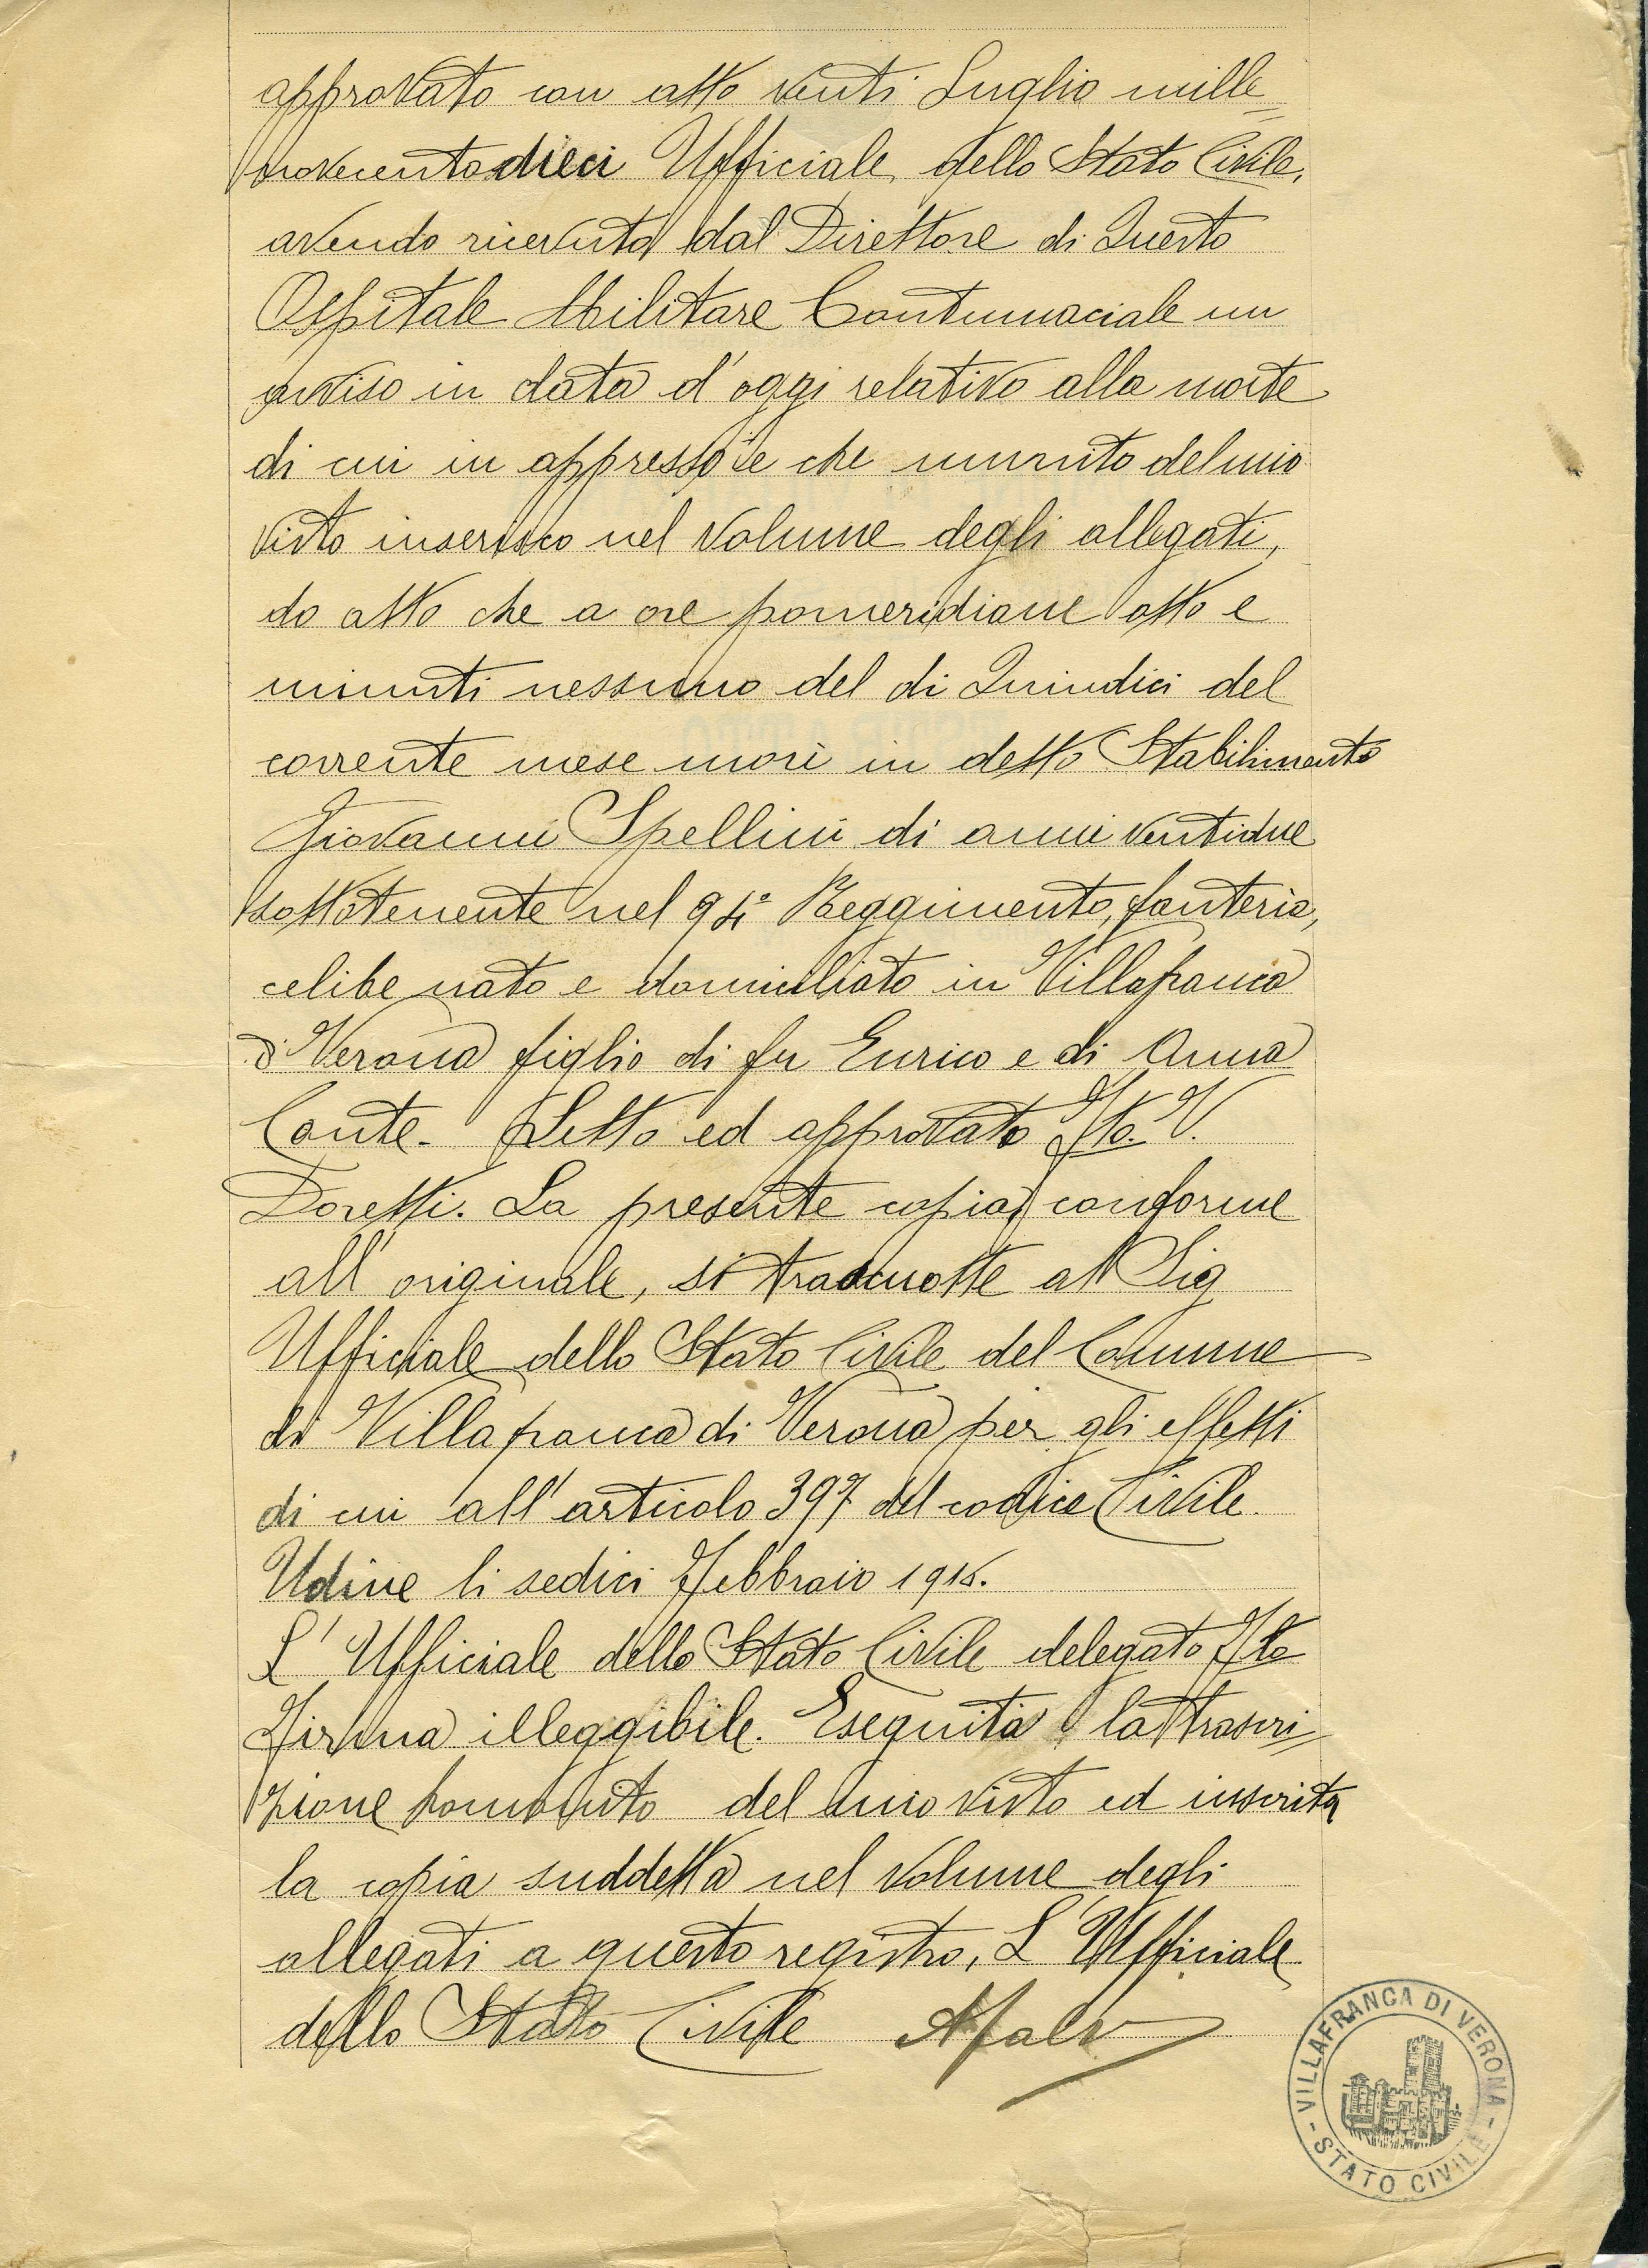 approvato con atto venti Luglio mille=
novecentodieci Ufficiale dello Stato Civile,
avendo ricevuto dal Direttore di Questo
Ospitale Militare Contumaciale un
avviso in data d'oggi relativo alla morte
di cui in appresso e che munito del mio
visto inserisco nel volume degli allegati,
do atto che a ore pomeridiane otto e
minuti nessuno del di Quindici del
corrente mese morì in detto Stabilimento
Giovanni Spellini di anni ventidue
sottotenente nel 94° Reggimento, fanteria,
celibe nato e domiciliato in Villafranca
di Verona figlio di fu Enrico e di Anna
Conte. Letto ed approvato Fto. V.
Doretti. La presente copia, conforme
all'originale, si trasmette al Sig
Ufficiale dello Stato Civile del Comune
di Villafranca di Verona per gli effetti
di cui all'articolo 397 del codice Civile.
Udine li sedici Febbraio 1916.
L'Ufficiale dello Stato Civile delegato Fto
Firma illeggibile. Eseguita la trascri=
zione del mio visto ed inserita
la copia suddetta nel volume degli
allegati a questo registro, L'Ufficiale
dello Stato Civile
VILLAFRANCA DI VERONA
- STATO CIVILE -